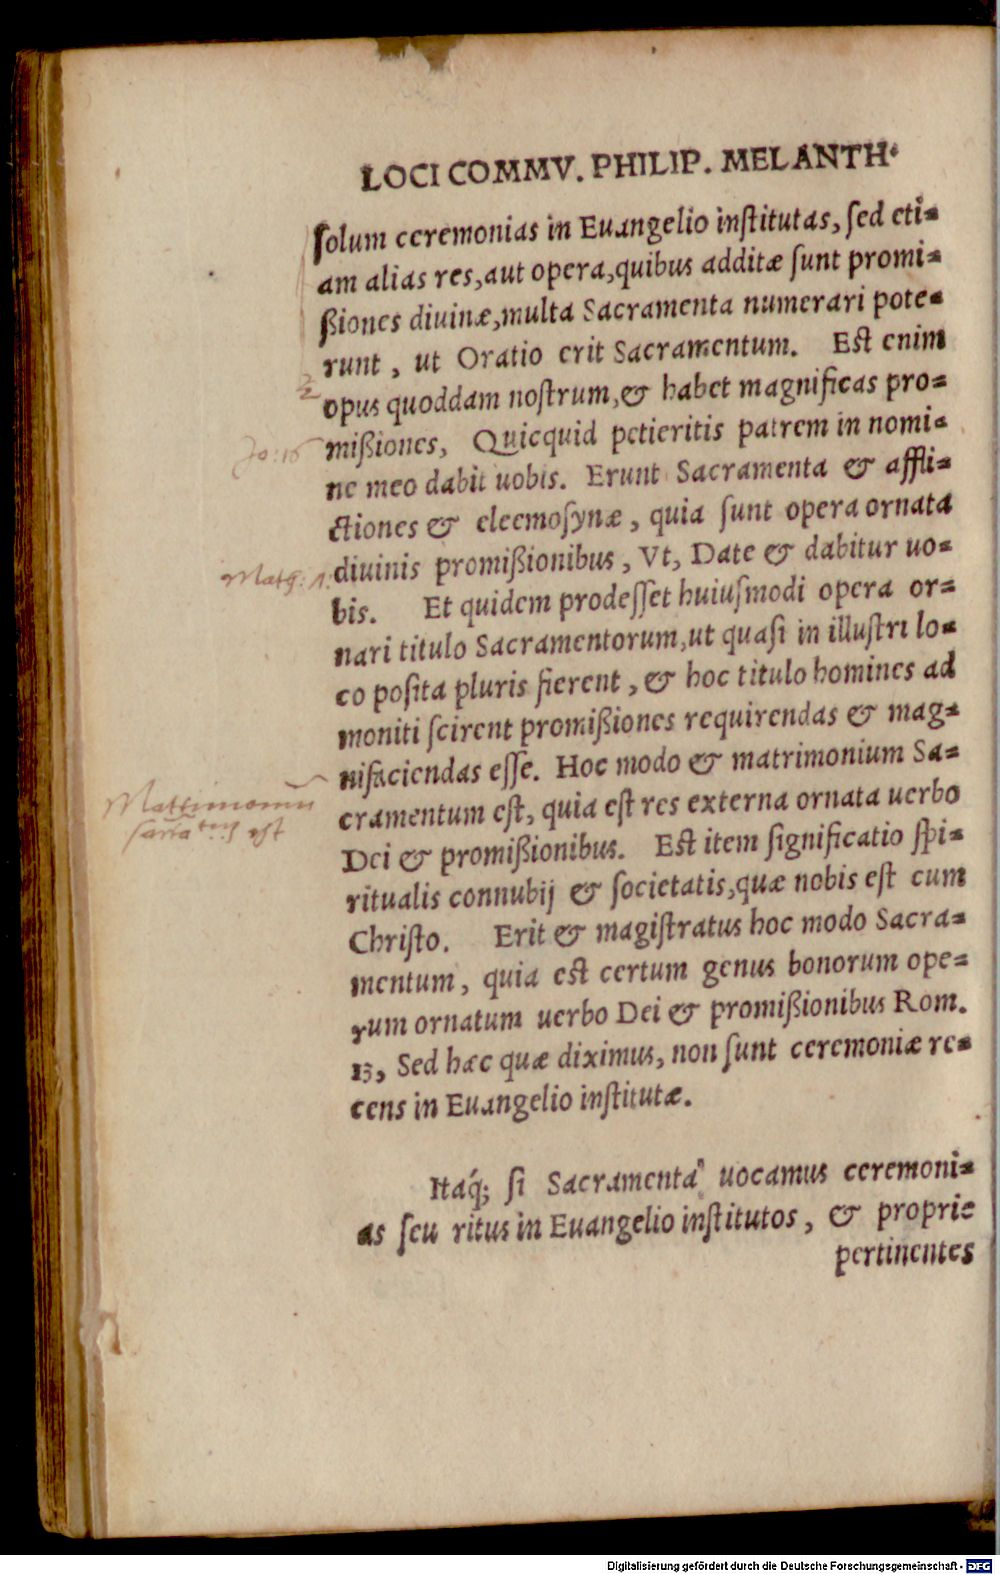 LOCI COMMV. PHILIP. MELANTH.
ſolum ceremonias in Euangelio inſtitutas, ſed eti⸗
am alias res, aut opera, quibus additæ ſunt promi⸗
ßiones diuinæ, multa Sacramenta numerari pote⸗
runt, ut Oratio erit Sacramentum. Eſt enim
opus quoddam noſtrum, & habet magnificas pro⸗
mißiones, Quicquid petieritis patrem in nomi⸗
Jo: 16
ne meo dabit uobis. Erunt Sacramenta & affli⸗
ctiones & eleemoſynæ, quia ſunt opera ornata
diuinis promißionibus, Vt, Date & dabitur uo⸗
bis. Et quidem prodeſſet huiuſmodi opera or⸗
nari titulo Sacramentorum, ut quaſi in illuſtri lo⸗
co poſita pluris fierent, & hoc titulo homines ad
moniti ſcirent promißiones requirendas & mag⸗
nifaciendas eſſe. Hoc modo & matrimonium Sa⸗
Matrimoniu
cramentum eſt, quia eſt res externa ornata uerbo
est
Dei & promißionibus. Eſt item ſignificatio ſpi⸗
ritualis connubij & ſocietatis, quæ nobis eſt cum
Chriſto. Erit & magiſtratus hoc modo Sacra⸗
mentum, quia eſt certum genus bonorum ope⸗
rum ornatum uerbo Dei & promißionibus Rom.
13, Sed hæc quæ diximus, non ſunt ceremoniæ re⸗
cens in Euangelio inſtitutæ.
Itaq́; ſi Sacramenta uocamus ceremoni⸗
as ſeu ritus in Euangelio inſtitutos, & proprie
pertinentes
Digitalisierung gefördert durch die Deutsche Forschungsgemeinschaft - DFG